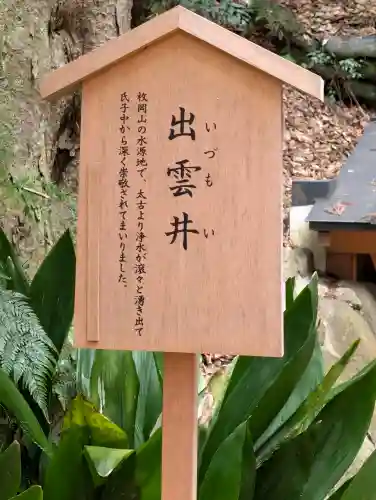 出雲井
いづもい
枚岡山の水源地で、太古より浄水が滾々と湧き出て
氏子中から深く崇敬されてまいりました。